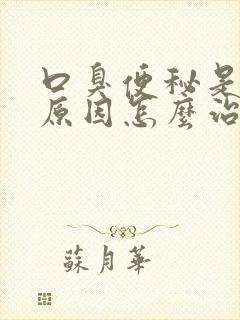 口臭便秘是
原因怎麼治
蘇月華